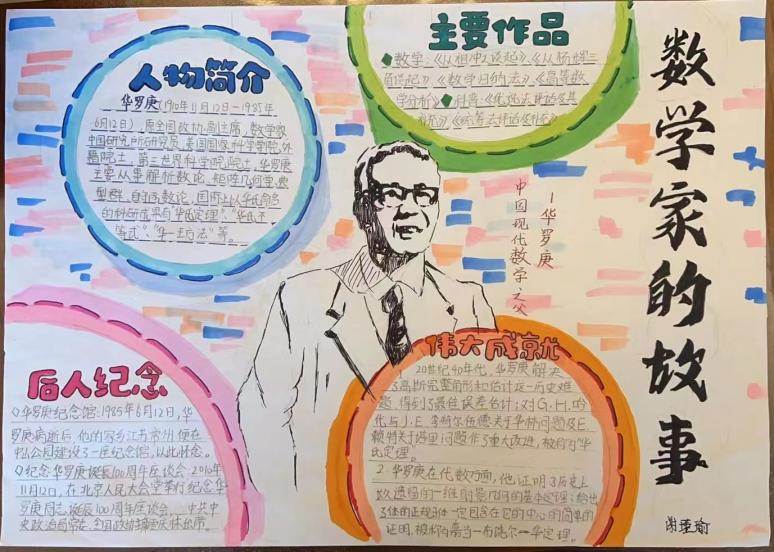 数学家的故事
谢瑾瑜
—华罗庚
中国现代数学之父
人物简介
华罗庚(1910年11月12日—1985年
6月12日),原全国政协副主席,数学家
中国科学院院士,美国国家科学院外
籍院士,第三世界科学院院士,华罗庚
主要从事解析数论,矩阵几何学,典
型群,自守函数论,国际上以华氏命名
的科研成果有"华氏定理","华氏不
等式"、"华—王方法"等。
主要作品
数学:《从祖冲之谈起》、《从杨辉三
角谈起》《数学归纳法》、《高等数
学分析》
科普:《优选法平话及其
补充》《统筹法平话及补充》
后人纪念
华罗庚纪念馆:1985年6月12日,华
罗庚病逝后,他的家乡江苏常州便在
公园建设了一座纪念馆,以此怀念。
纪念华罗庚诞辰100周年座谈会:2010年
11月12日,在北京人民大会堂举行纪念华
罗庚同志诞辰100周年座谈会,中共中
央政治局常委,全国政协主席出席。
伟大成就
20世纪40年代,华罗庚解决
了高斯完整三角和的估计这一历史难
题,得到了最佳误差估计;对G.H.哈
代与J.E.李特尔伍德关于华林问题及E.
赖特关于塔里问题作了重大改进,被称为"华
氏定理。
2.华罗庚在代数方面,他证明了历史上
久遗留的一维射影几何的基本定理;给出
了体的正规子体一定包含在它的中心的简单的
证明,被称为嘉当—布饶尔—华定理。